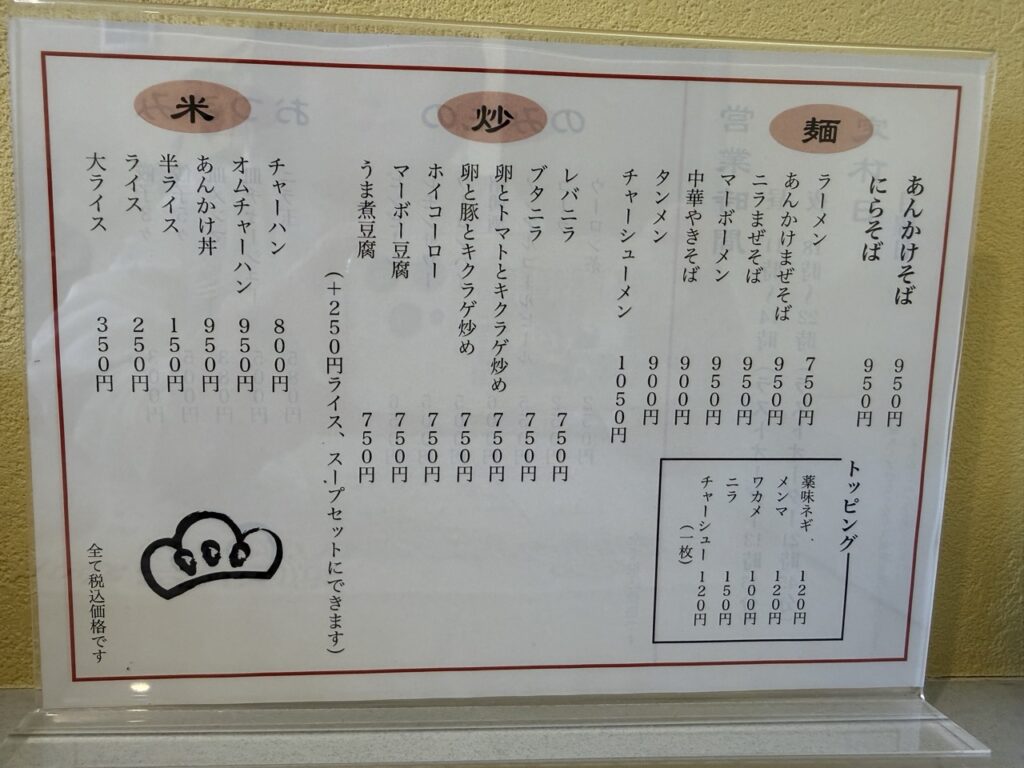 麺
あんかけそば 950円
にらそば 950円
ラーメン 750円
あんかけまぜそば 950円
ニラまぜそば 950円
マーボーメン 950円
中華やきそば 900円
タンメン 900円
チャーシューメン 1050円
トッピング
薬味ネギ 120円
メンマ 120円
ワカメ 100円
ニラ 150円
チャーシュー(一枚) 120円
炒
レバニラ 750円
ブタニラ 750円
卵とトマトとキクラゲ炒め 750円
卵と豚とキクラゲ炒め 750円
ホイコーロー 750円
マーボー豆腐 750円
うま煮豆腐 750円
(+250円ライス、スープセットにできます)
米
チャーハン 800円
オムチャーハン 950円
あんかけ丼 950円
半ライス 150円
ライス 250円
大ライス 350円
全て税込価格です